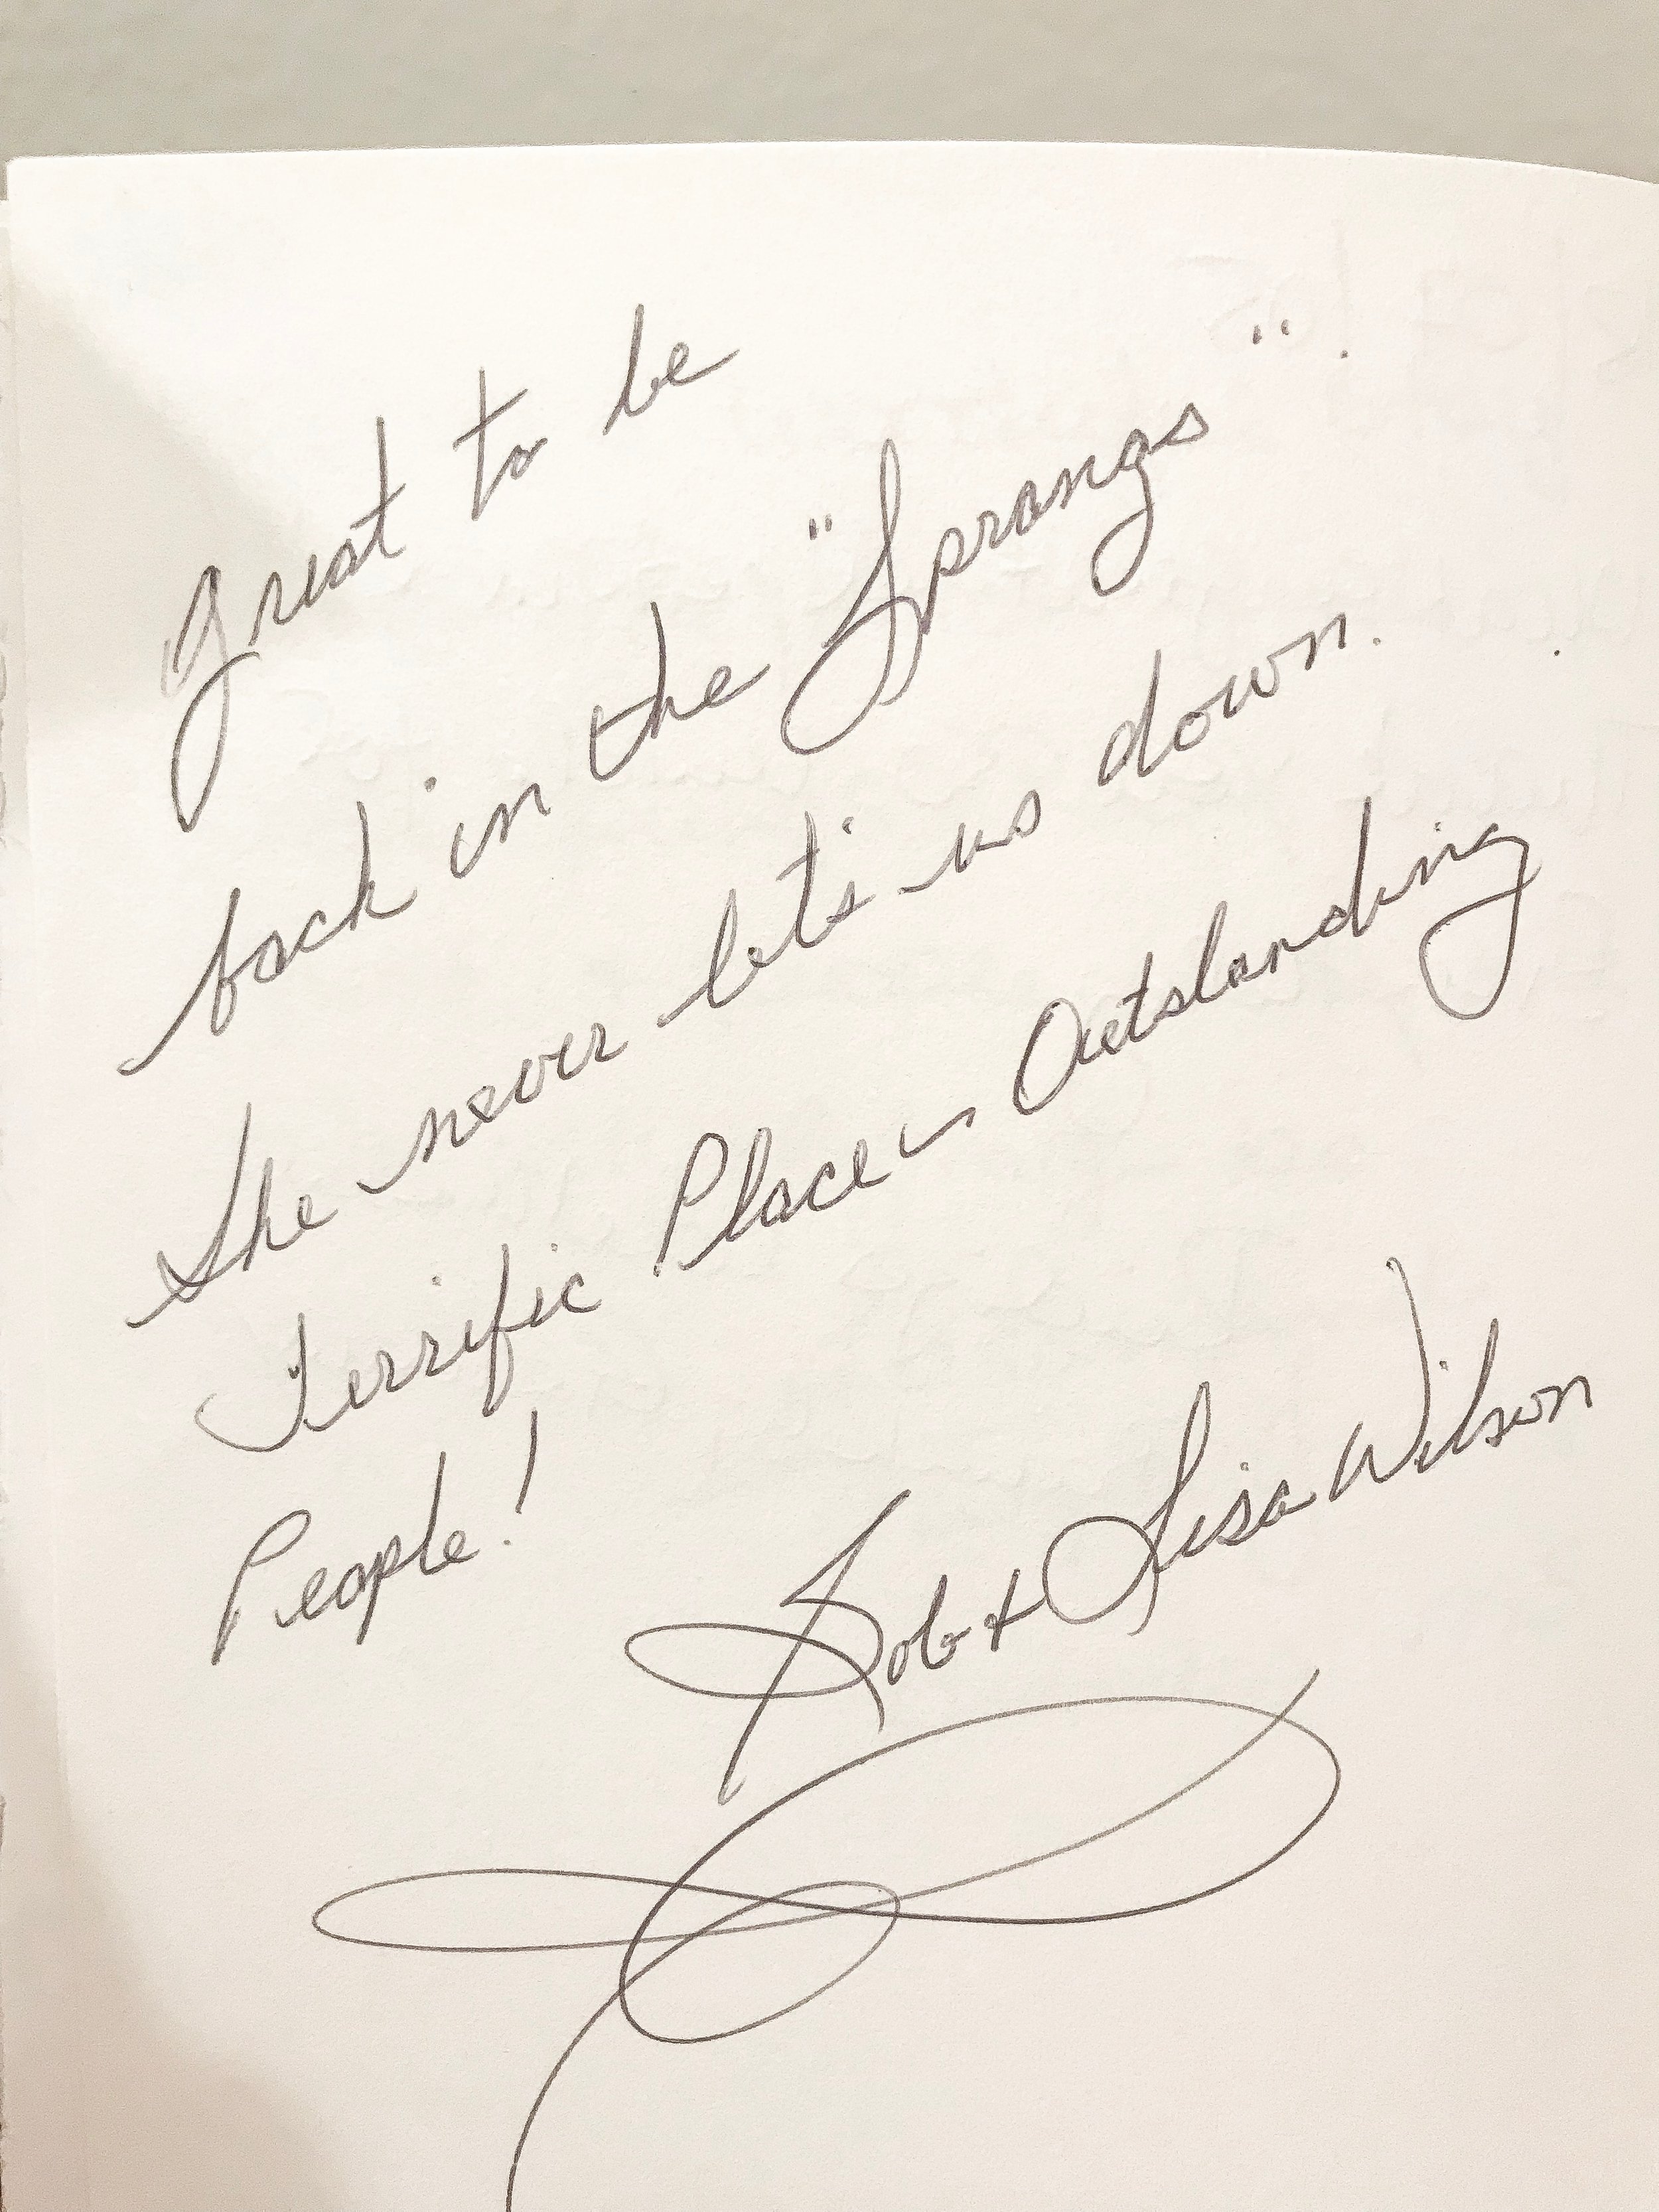 Great to be
back in the "Sprangs".
She never let's us down.
Terrific Place w Outstanding
People!
Rob + Lisa Wilson